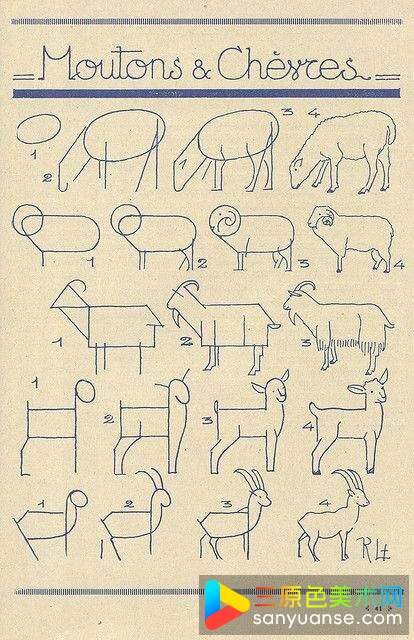 Moutons & Chèvres
1 2 3 4
1 2 3 4
1 2 3
1 2 3 4
1 2 3 4
三原色美术网
sanyuanse.com